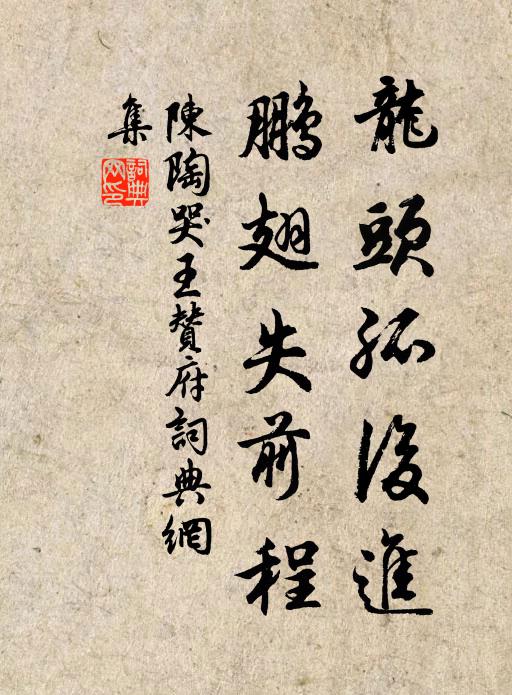 龍頭孤後進
鵬翅失前程
陳陶哭王贊府詞典網
集
詞典網印